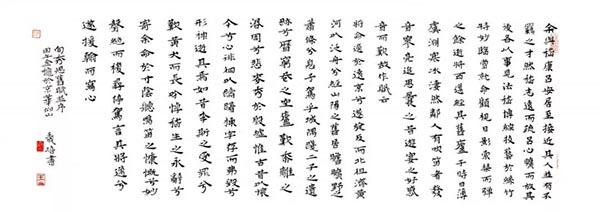 余與嵇康呂安居至接近其人並有不
羈之才然嵇志遠而疏呂心曠而放其
後各以事見法嵇博綜技藝於絲竹
特妙臨當就命顧視日影索琴而彈
之餘逝將西邁經其舊廬于時日薄
虞淵寒冰淒然鄰人有吹笛者發
音寥亮追思曩之昔遊宴之好感
音而歎故作賦云
將命適於遠京兮遂旋反而北徂濟黃
河以泛舟兮經山陽之舊居瞻曠野之
蕭條兮息予駕乎城隅踐二子之遺
跡兮曆窮巷之空廬歎黍離之
湣周兮悲麥秀於殷墟惟古昔以懷
今兮心徘徊以躊躇棟宇存而弗毀兮
形神逝其焉如昔李斯之受罪兮
歎黃犬而長吟悼嵇生之永辭兮
寄余命於寸陰聽鳴笛之慷慨兮妙
聲絕而複尋停駕言其將邁兮
遂援翰而寫心
向秀思舊賦並序
於京華仙山
書